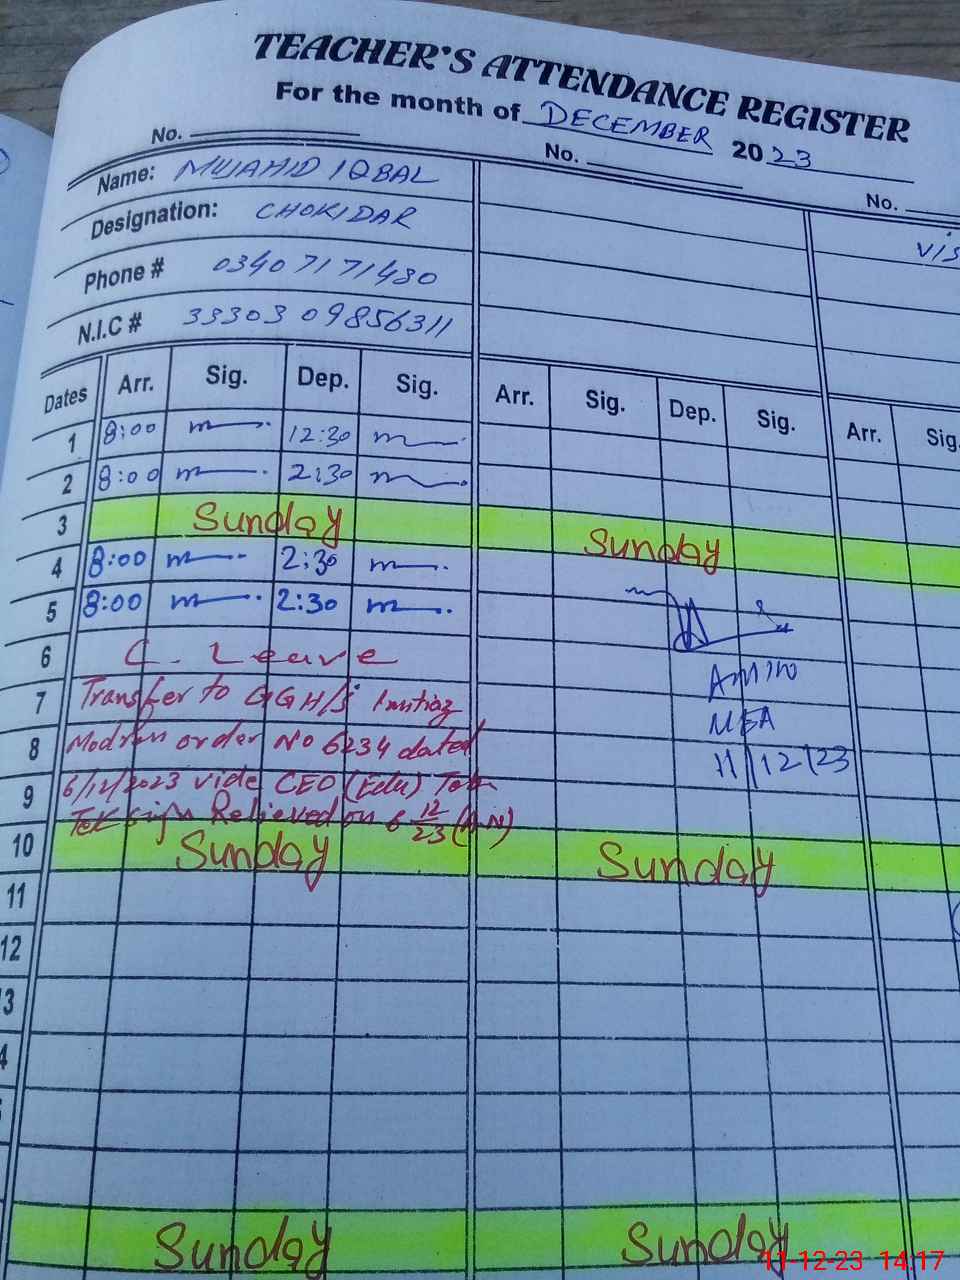 TEACHER'S ATTENDANCE REGISTER
For the month of DECEMBER 2023
No. No. No.
Name: MUJAHID IQBAL
Designation: CHOKIDAR
Phone # 03407171430
N.I.C # 33303 09856311
vis
Dates Arr. Sig. Dep. Sig. Arr. Sig. Dep. Sig. Arr. Sig.
1 8:00 12:30
2 8:00 2:30
3 Sunday Sunday
4 8:00 2:30
5 8:00 2:30
6 C. Leave
7 Transfer to GGH/S Imtiaz
8 Modren order No 6234 dated
9 6/12/2023 vide CEO (Edu) Toba
Tek Relieved on 6 12/23 (A.N)
MEA
11/12/23
10 Sunday Sunday
11
12
3
4
Sunday Sunday
11-12-23 14:17